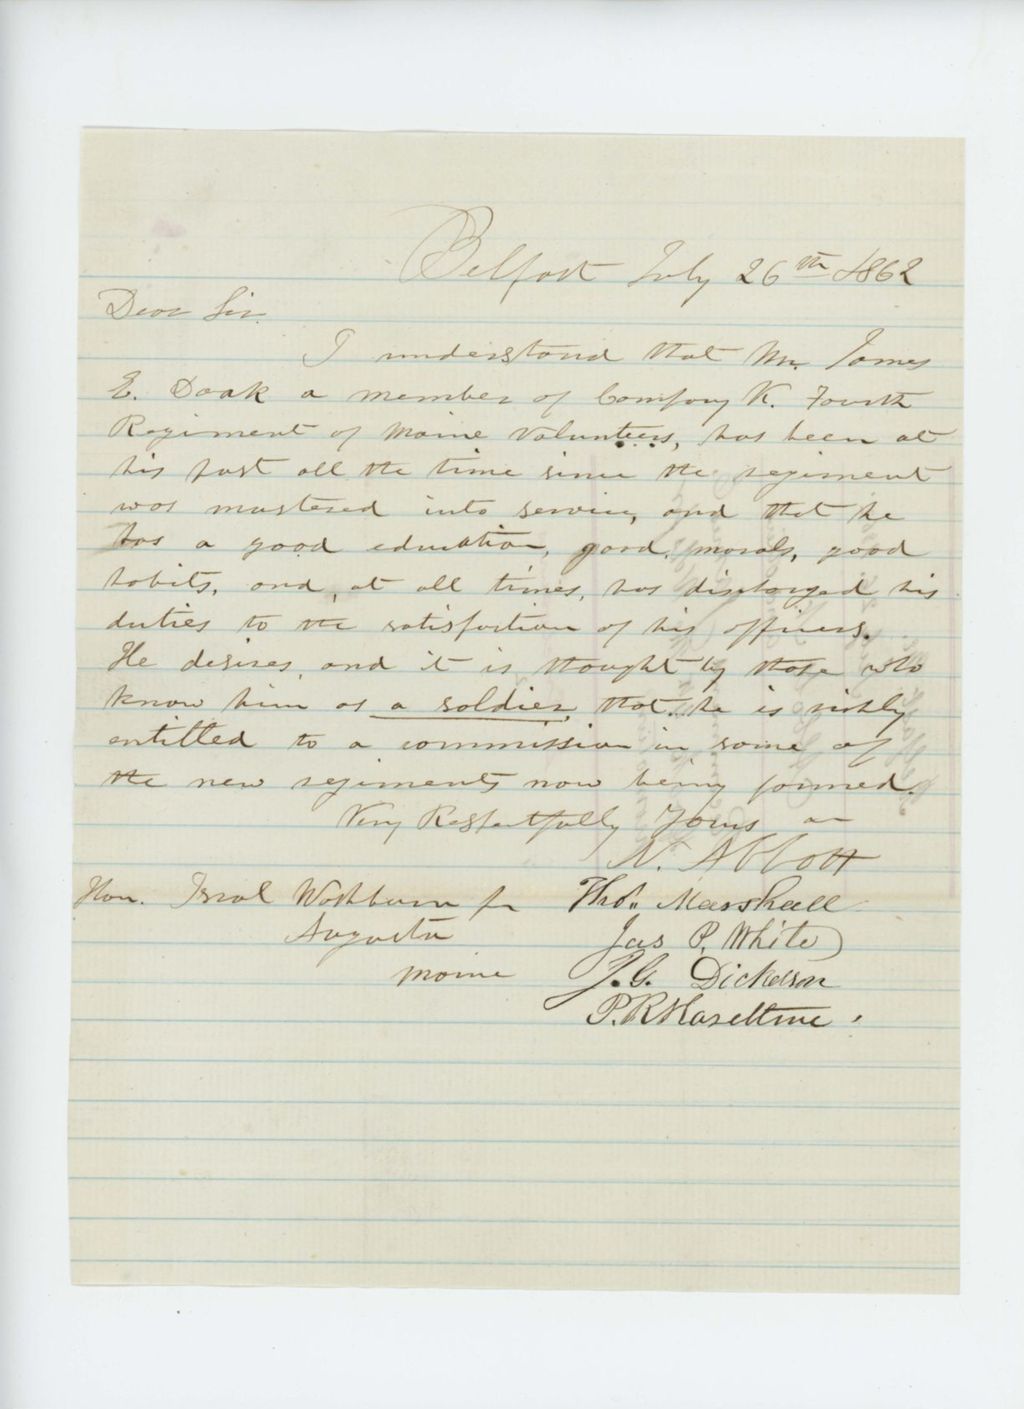 Belfast July 26th 1862
Dear Sir.
I understand that Mr. James
E. Doak a member of Company K. Fourth
Regiment of Maine Volunteers, has been at
his post all the time since the regiment
was mustered into service, and that he
has a good education, good morals, good
habits, and, at all times, has discharged his
duties to the satisfaction of his officers.
He desires, and it is thought by those who
know him as a soldier, that he is richly
entitled to a commission in some of
the new regiments now being formed.
Very Respectfully Yours
N. Abbott
Hon. Israel Washburn Jr Thos. Marshall
Augusta Jas P. White
Maine J. G. Dickerson
P. R. Hazeltine.